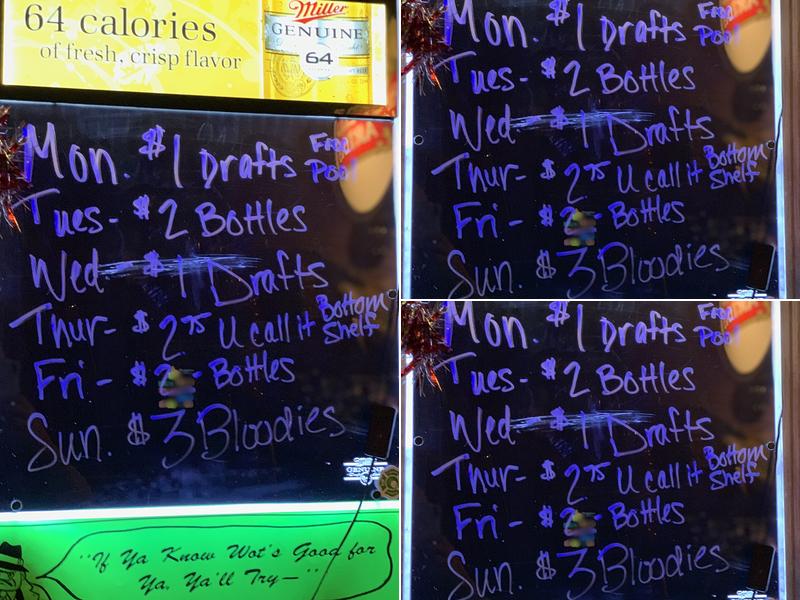 64 calories
of fresh, crisp flavor
Miller
GENUINE
64
Mon. $1 Drafts Free Pool
Tues- $2 Bottles
Wed- $1 Drafts
Thur- $2.75 U call it Bottom Shelf
Fri- $2- Bottles
Sun. $3 Bloodies
GENUINE
"If Ya Know Wot's Good for
Ya, Ya'll Try—"
Mon. $1 Drafts Free Pool
Tues- $2 Bottles
Wed- $1 Drafts
Thur- $2.75 U call it Bottom Shelf
Fri- $2- Bottles
Sun. $3 Bloodies
Mon. $1 Drafts Free Pool
Tues- $2 Bottles
Wed- $1 Drafts
Thur- $2.75 U call it Bottom Shelf
Fri- $2- Bottles
Sun. $3 Bloodies